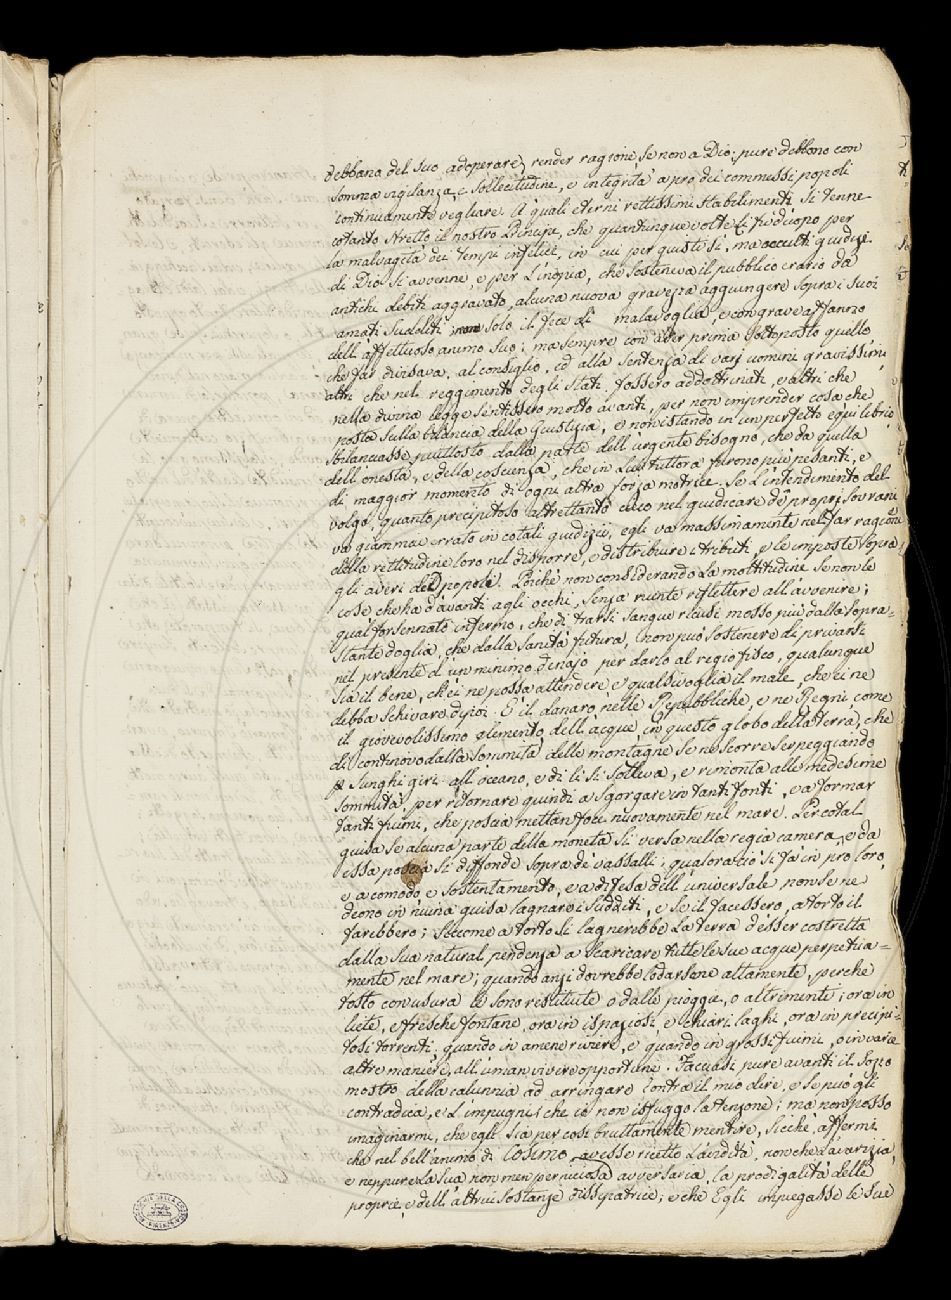 debbana del suo adoperare, render ragione, se non a Dio; pure debbono con
somma vigilanza, e sollecitudine, e integrità a pro dei commessi popoli
continuamente vegliare. A quali eterni rettissimi stabilimenti si tenne
cotanto stretto il nostro Principe, che quantunque volte gli fu d'uopo per
la malvagità dei tempi infelici, in cui per giusti sì, ma occulti giudizi
di Dio si avvenne, e per l'inopia, che sosteneva il pubblico erario da
antichi debiti aggravato, alcuna nuova gravezza aggiungere sopra i suoi
amati sudditi non solo il fece di malavoglia, e con grave affanno
dell'affettuoso animo suo: ma sempre con aver prima sottoposto quello
che far divisava, al consiglio, ed alla sentenza di varj uomini gravissimi
altri che nel reggimento degli Stati fossero addottrinati, e altri che
nella divina legge sentissero molto avanti, per non imprender cosa che
posta sulla bilancia della Giustizia, e non istando in un perfetto equilibrio
sbilanciasse piuttosto dalla parte dell'urgente bisogno, che da quella
dell'onestà, e della coscienza, che in lui tuttora furono più pesanti, e
di maggior momento di ogni altra forza motrice. Se l'intendimento del
volgo, quanto precipitoso altrettanto cieco nel giudicare de proprj Sovrani
va giammai errato in cotali giudizii, egli va massimamente nel far ragione
della rettitudine loro nel disporre, e distribuire i tributi, e le imposte sopra
gli averi de popoli. Poichè non considerando la moltitudine se non le
cose che ha d'avanti agli occhi, senza niente riflettere all'avvenire;
qual forsennato infermo, che di trarsi sangue ricusi mosso più dalla sopra-
stante doglia, che dalla sanità futura, non può sostenere di privarsi
nel presente d'un minimo denajo per darlo al regio fisco, qualunque
sia il bene, ch'ei ne possa attendere e qualsivoglia il male, che ei ne
debba schivare dipoi. È il danaro nelle Repubbliche, e ne Regni, come
il giovevolissimo elemento dell'acque, in questo globo della terra, che
di continovo dalla sommità delle montagne se ne scorre serpeggiando
per lunghi giri all'oceano, e di lì si solleva, e rimonta alle medesime
sommità, per ritornare quindi a sgorgare in tanti fonti, e a formar
tanti fiumi, che poscia mettan foce nuovamente nel mare. Per cotal
guisa se alcuna parte della moneta si versa nella regia camera, e da
essa poscia si diffonde sopra de vassalli; qualora ciò si fa in pro loro,
e a comodo, e sostentamento, e a difesa dell'universale non se ne
deono in niuna guisa lagnare i sudditi, e se il facessero, a torto il
farebbero; siccome a torto si lagnerebbe la terra d'esser costretta
dalla sua natural pendenza a scaricare tutte le sue acque perpetua-
mente nel mare; quando anzi dovrebbe lodarsene altamente, perchè
tosto con usura le sono restituite o dalle piogge, o altrimenti; ora in
liete, e fresche fontane, ora in ispaziosi, e chiari laghi, ora in precipi-
tosi torrenti, quando in amene riviere, e quando in grossi fiumi, o in varie
altre maniere, all'uman vivere opportune. Facciasi pure avanti il sozzo
mostro della calunnia ad arringare contra il mio dire, e se può gli
contradica, e l'impugni; che io non isfuggo la tenzone; ma non posso
imaginarmi, che egli sia per così bruttamente mentire, sicchè affermi
che nel bell'animo di Cosimo avesse ricetto l'avidità, non che l'avarizia,
e neppure la sua non men perniciosa avversaria, la prodigalità delle
proprie, e dell'altrui sostanze dissipatrice; e che Egli impiegasse le sue